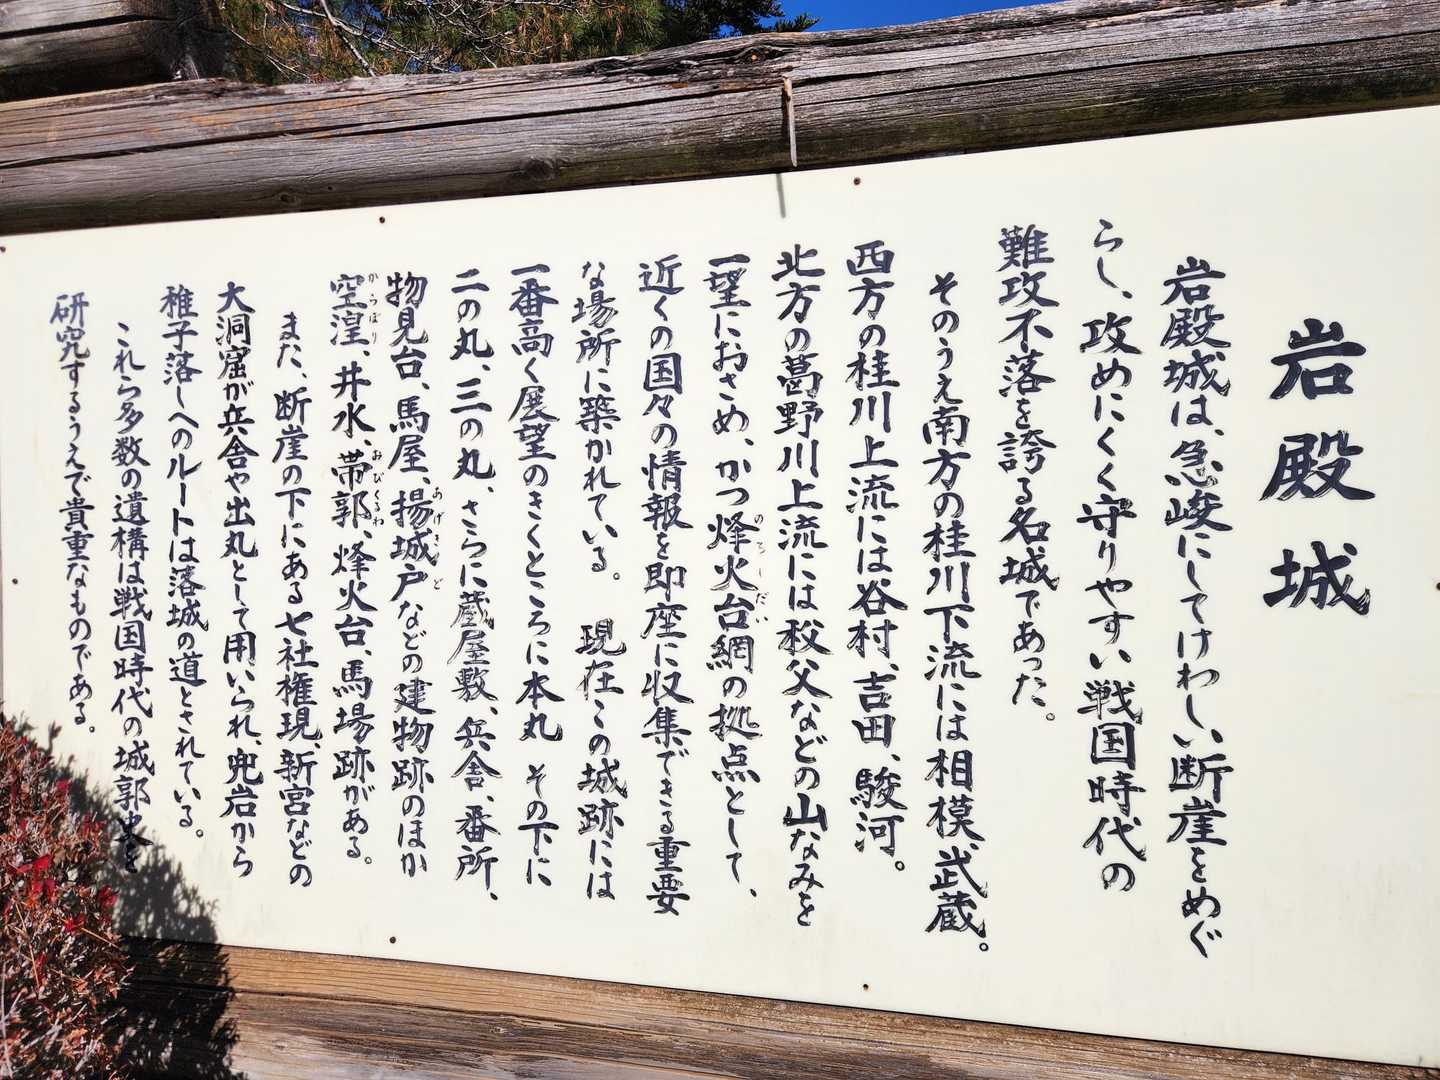 岩殿城
岩殿城は、急峻にしてけわしい断崖をめぐ
らし、攻めにくく守りやすい戦国時代の
難攻不落を誇る名城であった。
そのうえ南方の桂川下流には相模、武蔵。
西方の桂川上流には谷村、吉田、駿河。
北方の葛野川上流には秩父などの山なみを
一望におさめ、かつ烽火台網の拠点として、
のろしだい
近くの国々の情報を即座に収集できる重要
な場所に築かれている。 現在この城跡には
一番高く展望のきくところに本丸 その下に
二の丸、三の丸、さらに蔵屋敷、兵舎、番所、
物見台、馬屋、揚城戸などの建物跡のほか
あげきど
空湟、井水、帯郭、烽火台、馬場跡がある。
からぼり おびくるわ
また、断崖の下にある七社権現、新宮などの
大洞窟が兵舎や出丸として用いられ、兜岩から
稚子落しへのルートは落城の道とされている。
これら多数の遺構は戦国時代の城郭史を
研究するうえで貴重なものである。